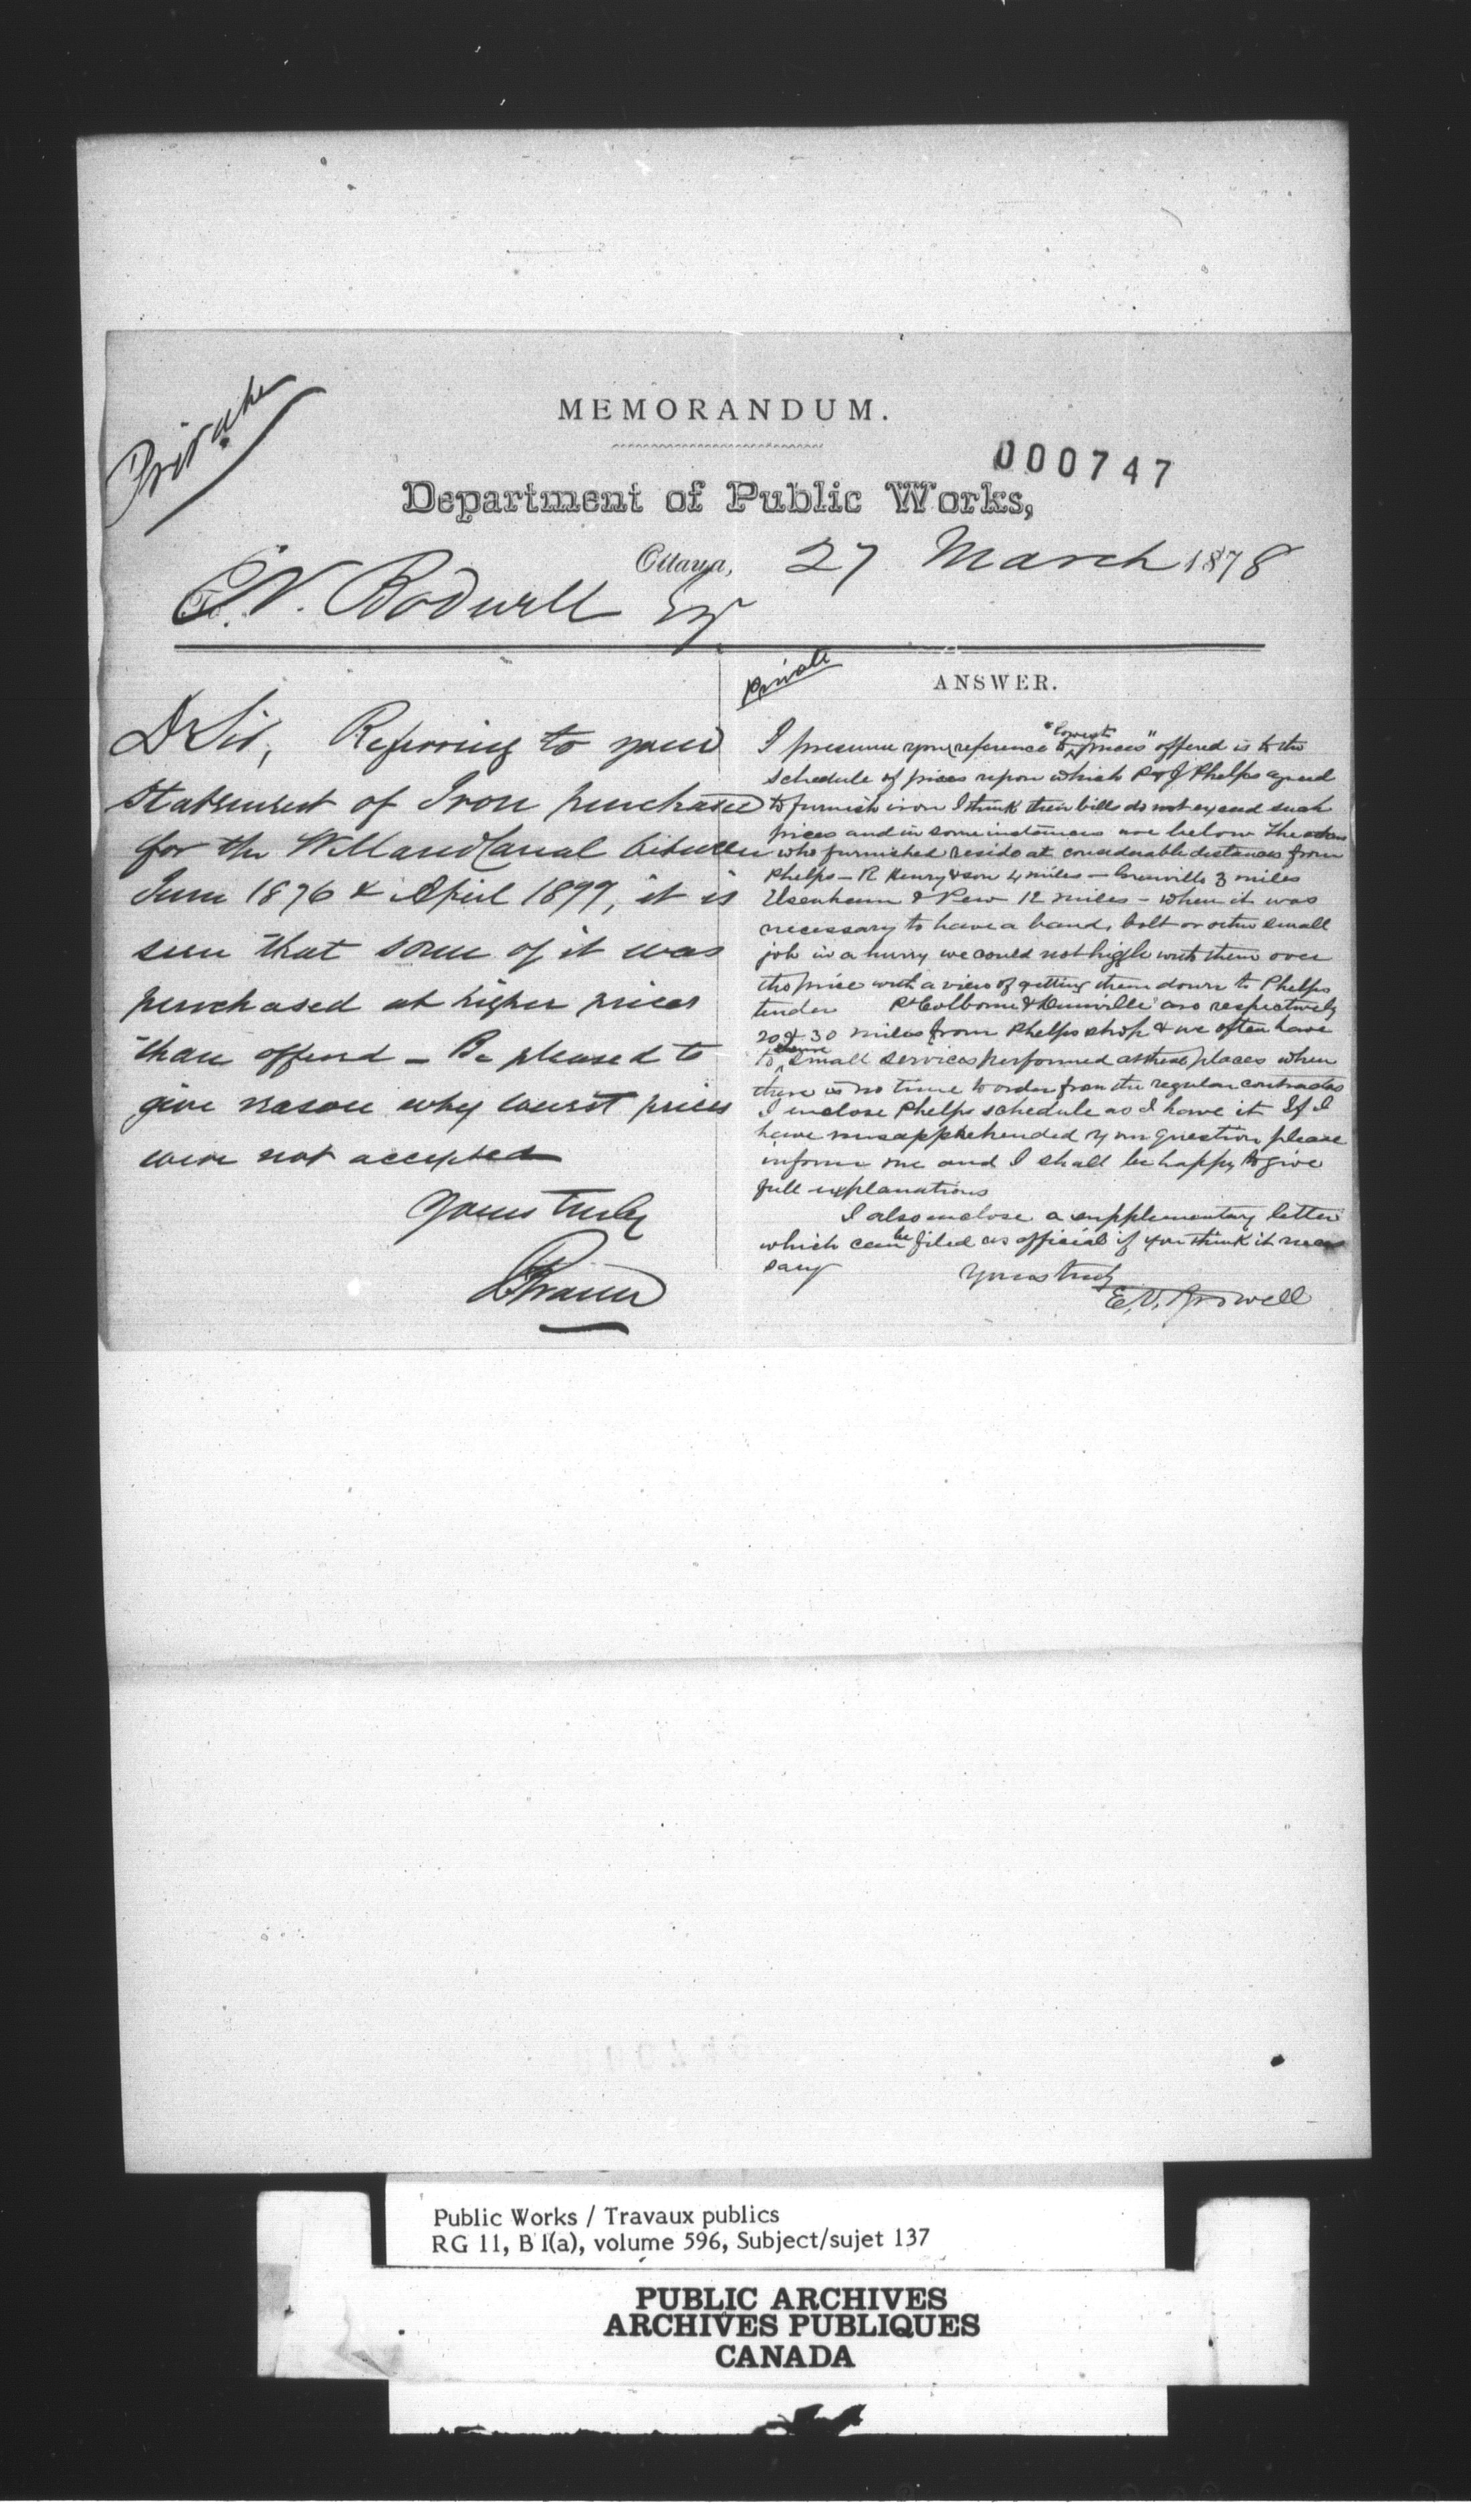 Private
MEMORANDUM.
000747
Department of Public Works,
Ottawa, 27 March 1878
To E.V. Bodwell Esqr
D Sir, Referring to your
statement of Iron purchased
for the Welland Canal between
June 1876 & April 1877, it is
seen that some of it was
purchased at higher prices
than offered — Be pleased to
give reason why lowest prices
were not accepted
Yours truly
Private
ANSWER.
I presume your reference to "lowest prices" offered is to the
schedule of prices upon which R & J Phelps agreed
to furnish iron I think their bills do not exceed such
prices and in some instances are below The others
who furnished reside at considerable distances from
Phelps — R Henry & son 4 miles — 3 miles
& Pew 12 miles — when it was
necessary to have a band, bolt or other small
job in a hurry we could not higgle with them over
the price with a view of getting them down to Phelps
tender Pt Colborne & Dunnville are respectively
20 & 30 miles from Phelps shop & we often have
to have small services performed at these places when
there is no time to order from the regular contractors
I enclose Phelps schedule as I have it If I
have misapprehended your question please
inform me and I shall be happy to give
full explanations
I also enclose a supplementary letter
which can be filed as official if you think it neces
sary
Yours truly
E.V. Bodwell
Public Works / Travaux publics
RG 11, B 1(a), volume 596, Subject/sujet 137
PUBLIC ARCHIVES
ARCHIVES PUBLIQUES
CANADA